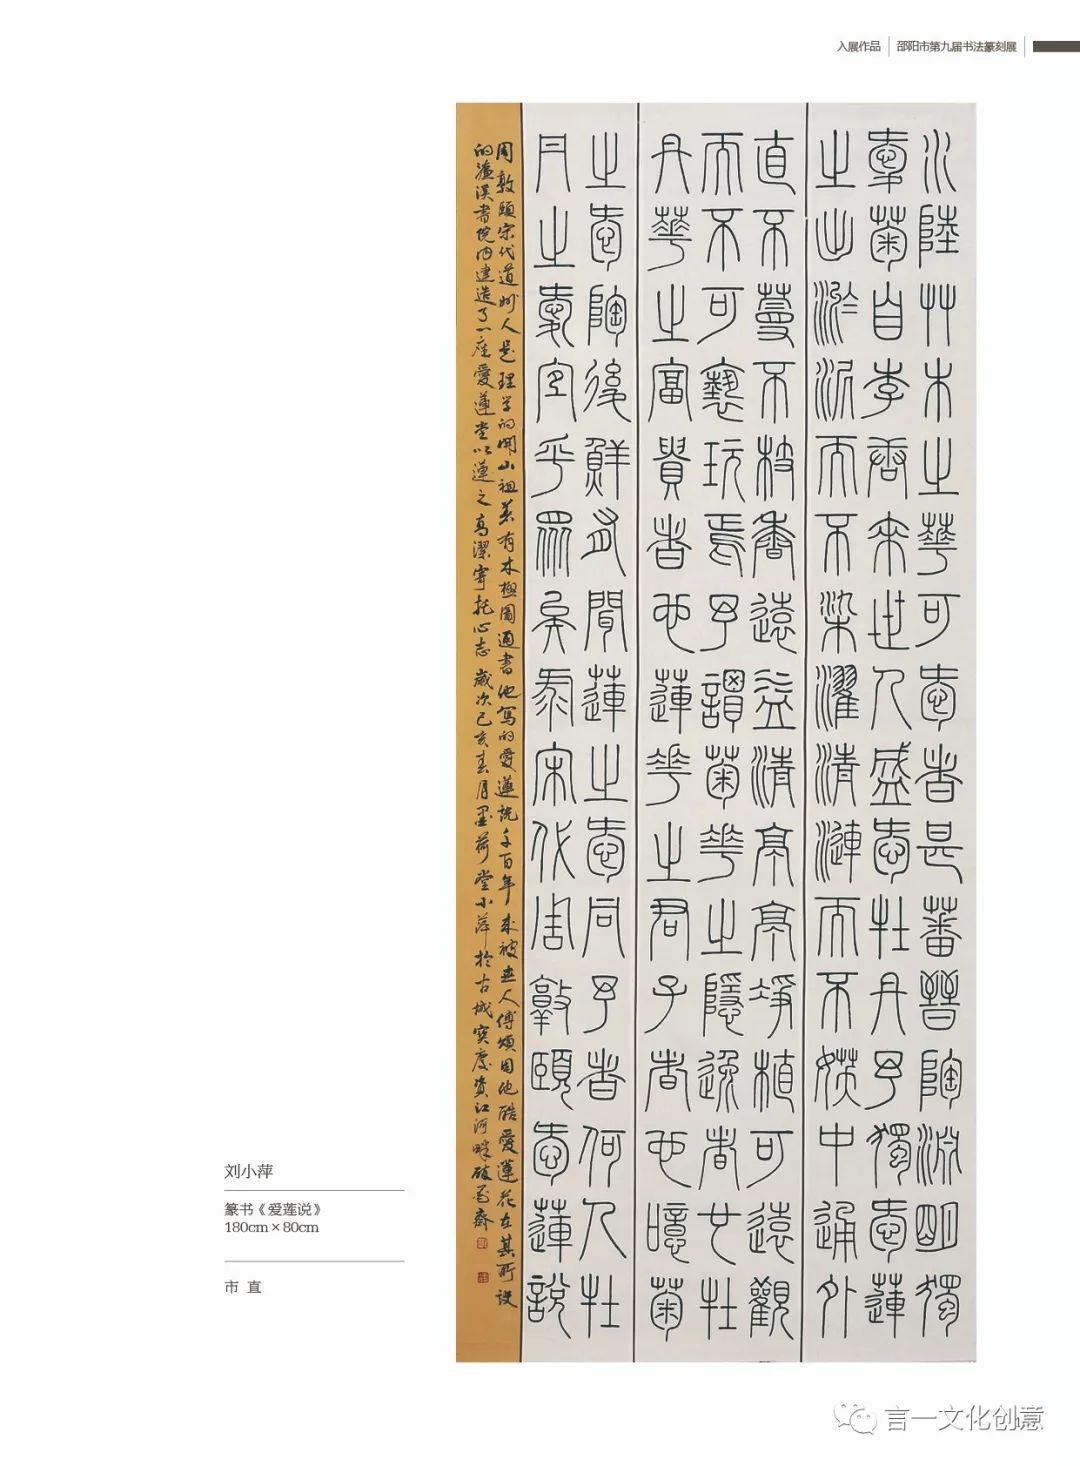 入展作品 邵阳市第九届书法篆刻展
水陸艸木之華可愛者甚蕃晉陶淵明獨
愛菊自李唐來世人盛愛牡丹予獨愛蓮
之出淤泥而不染濯清漣而不妖中通外
直不蔓不枝香遠益清亭亭淨植可遠觀
而不可褻玩焉予謂菊花之隱逸者也牡
丹華之富貴者也蓮花之君子者也噫菊
之愛陶後鮮有聞蓮之愛同予者何人牡
丹之愛宜乎眾矣宋代周敦頤愛蓮說
周敦頤宋代道州人是理学的開山祖著有太極圖通書他写的愛蓮説千百年来被世人傳頌因他酷愛蓮花在其所設
的濂溪書院内建造了一座愛蓮堂以蓮之高潔寄托心志 歲次己亥春月墨荷堂小萍於古城寶慶資江河畔齋
刘小萍
篆书《爱莲说》
180cm×80cm
市 直
言一文化创意